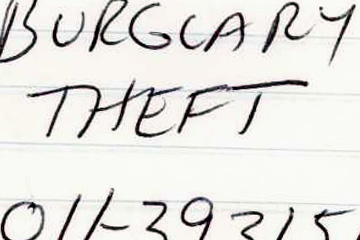 BURGLARY
THEFT
011-39315